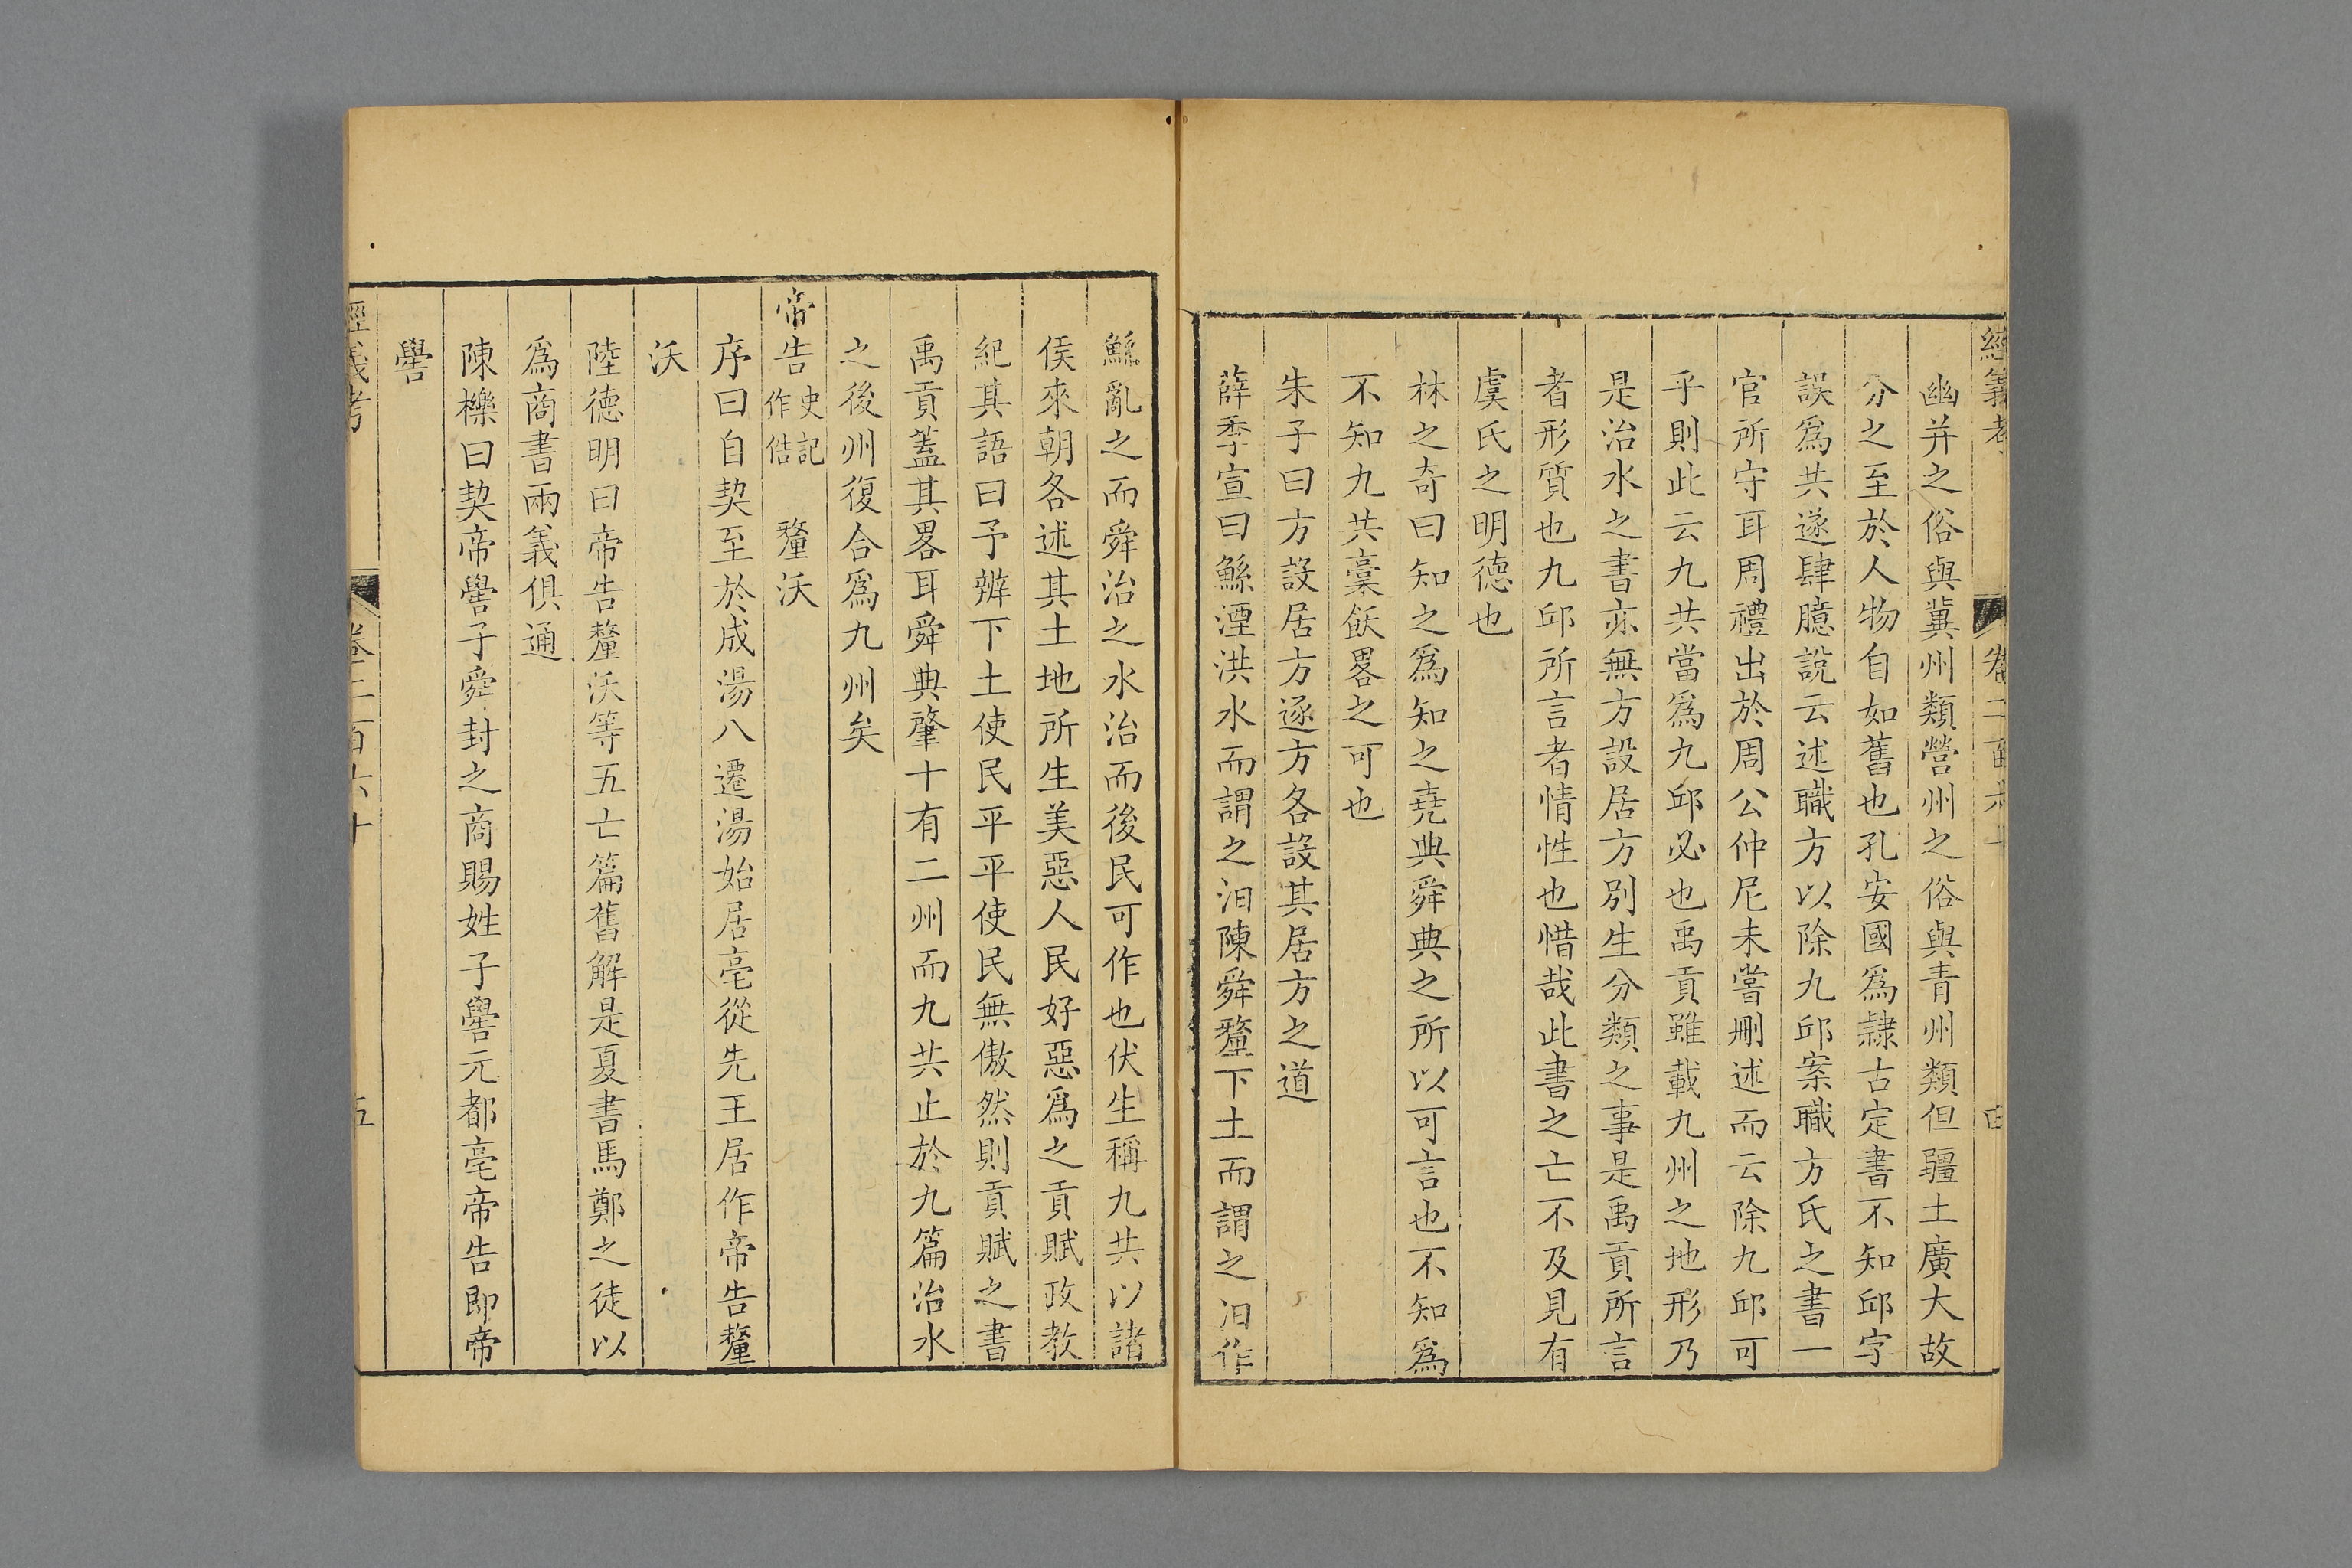 經義考 卷二百六十
幽并之俗與冀州類營州之俗與青州類但疆土廣大故
分之至於人物自如舊也孔安國爲隷古定書不知邱字
誤爲共遂肆臆說云述職方以除九邱案職方氏之書一
官所守耳周禮出於周公仲尼未嘗刪述而云除九邱可
乎則此云九共當爲九邱必也禹貢雖載九州之地形乃
是治水之書亦無方設居方別生分類之事是禹貢所言
者形質也九邱所言者情性也惜哉此書之亡不及見有
虞氏之明德也
林之奇曰知之爲知之堯典舜典之所以可言也不知爲
不知九共稾飫畧之可也
朱子曰方設居方逐方各設其居方之道
薛季宣曰鯀湮洪水而謂之汩陳舜釐下土而謂之汩作
鯀亂之而舜治之水治而後民可作也伏生稱九共以諸
侯來朝各述其土地所生美惡人民好惡爲之貢賦政教
紀其語曰予辨下土使民平平使民無傲然則貢賦之書
禹貢蓋其畧耳舜典肇十有二州而九共止於九篇治水
之後州復合爲九州矣
帝告史記作俈 釐沃
序曰自契至於成湯八遷湯始居亳從先王居作帝告釐
沃
陸德明曰帝告釐沃等五亡篇舊解是夏書馬鄭之徒以
爲商書兩義俱通
陳櫟曰契帝嚳子舜封之商賜姓子嚳元都亳帝告即帝
嚳
經義考 卷二百六十 五